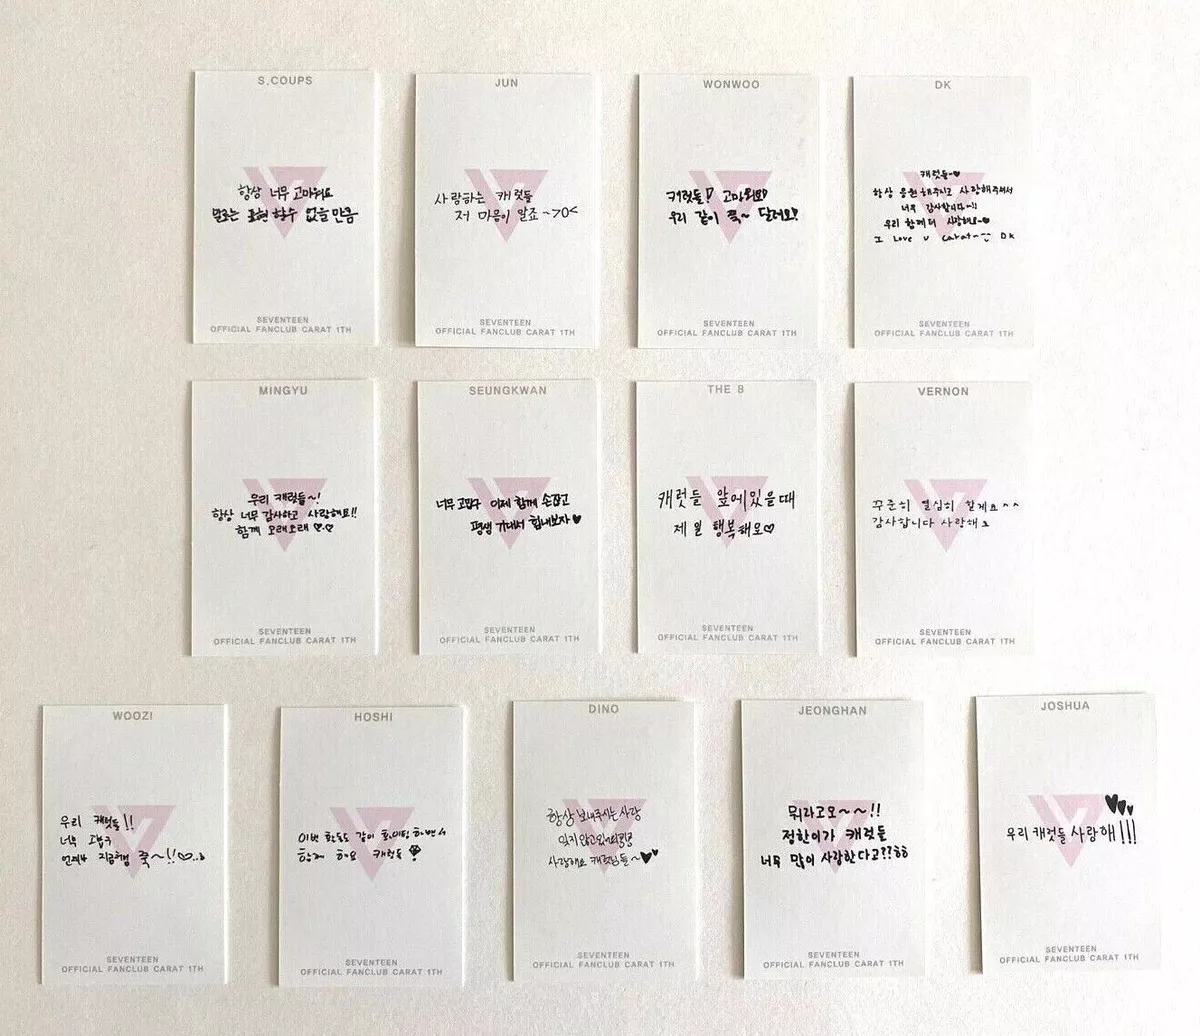 S.COUPS
항상 너무 고마워요
말로는 표현 할수 없을 만큼
SEVENTEEN
OFFICIAL FANCLUB CARAT 1TH
JUN
사랑하는 캐럿들
저 마음이 알죠~>0<
SEVENTEEN
OFFICIAL FANCLUB CARAT 1TH
WONWOO
캐럿들! 고마워요!
우리 같이 쭉~ 달려요!
SEVENTEEN
OFFICIAL FANCLUB CARAT 1TH
DK
캐럿들~♥
항상 응원해주시고 사랑해주셔서
너무 감사합니다~!!
우리 함께해 사랑해요~♥
I Love U Carat~ DK
SEVENTEEN
OFFICIAL FANCLUB CARAT 1TH
MINGYU
우리 캐럿들~!
항상 너무 감사하고 사랑해요!!
함께 오래오래 ♡♡
SEVENTEEN
OFFICIAL FANCLUB CARAT 1TH
SEUNGKWAN
너무 고맙구 이제 함께 손잡고
평생 기대서 힘내보자♥
SEVENTEEN
OFFICIAL FANCLUB CARAT 1TH
THE 8
캐럿들 앞에있을때
제일 행복해요♡
SEVENTEEN
OFFICIAL FANCLUB CARAT 1TH
VERNON
꾸준히 열심히 할게요^^
감사합니다 사랑해요
SEVENTEEN
OFFICIAL FANCLUB CARAT 1TH
WOOZI
우리 캐럿들!!
너무 고맙구
언제나 지금처럼 쭉~!!♡
SEVENTEEN
OFFICIAL FANCLUB CARAT 1TH
HOSHI
이번 활동도 같이 화이팅 하면서
함께 해요 캐럿들
SEVENTEEN
OFFICIAL FANCLUB CARAT 1TH
DINO
항상 보내주시는 사랑
잊지 않고
사랑해요 캐럿님들~♥♥
SEVENTEEN
OFFICIAL FANCLUB CARAT 1TH
JEONGHAN
뭐라고요~~!!
정한이가 캐럿들
너무 많이 사랑한다고??ㅎㅎ
SEVENTEEN
OFFICIAL FANCLUB CARAT 1TH
JOSHUA
우리 캐럿들 사랑해!!!
SEVENTEEN
OFFICIAL FANCLUB CARAT 1TH